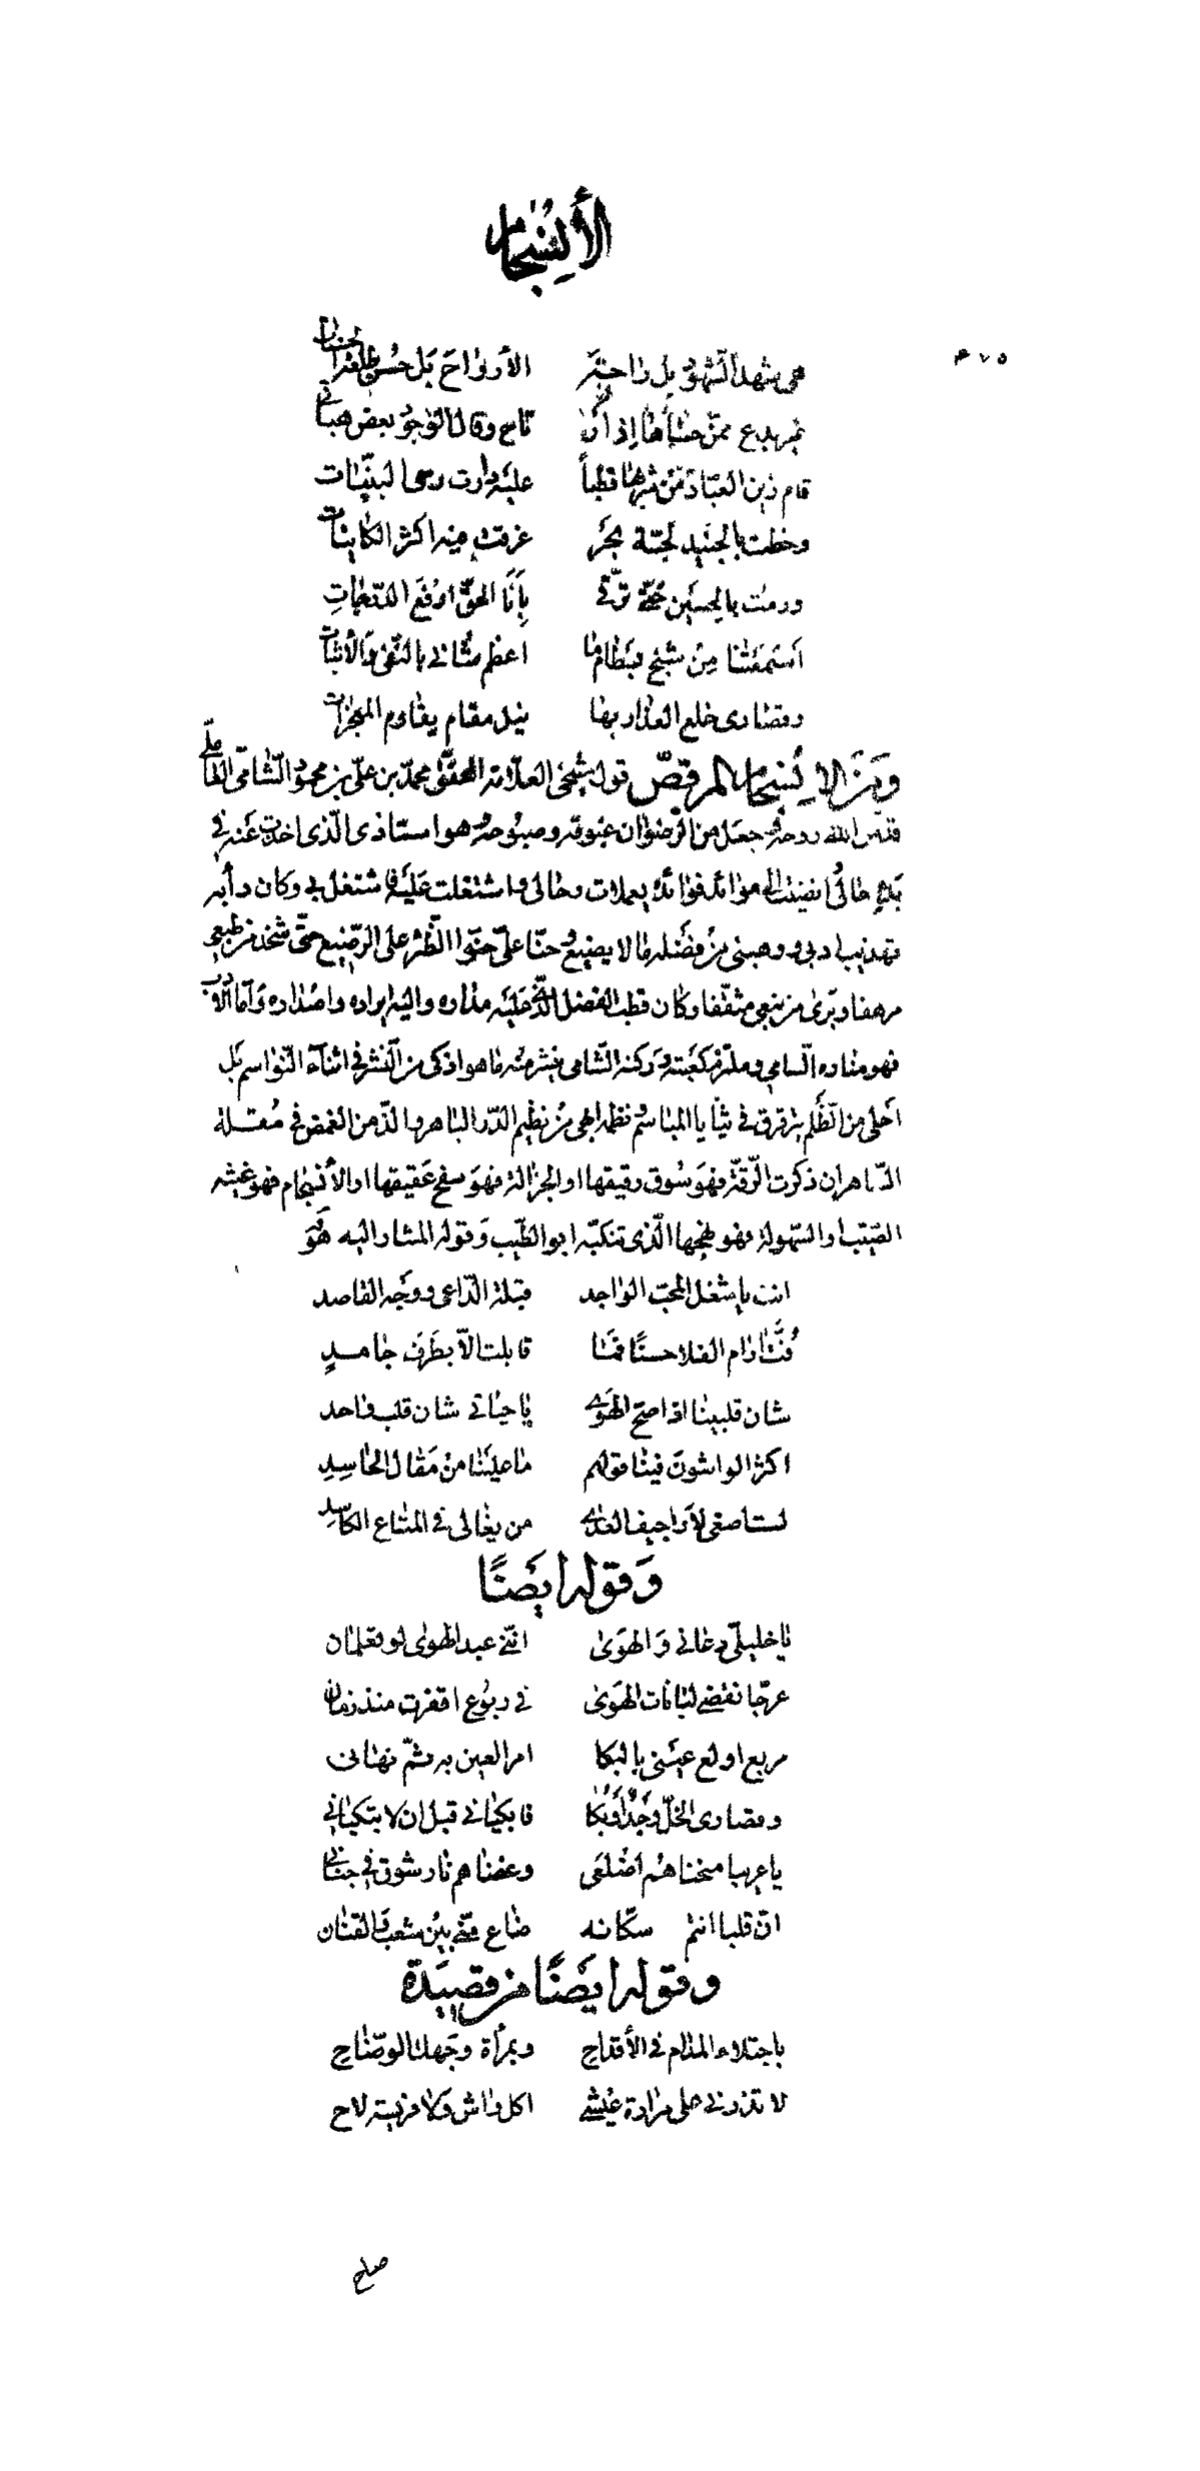 الأنسجام
٤٧٥
هي شهد الشهود بل راحة الأرواح بل حسن طلعة الحسنات
قام زين العباد من شربها قطبا عليه دارت رحى البينات
وخطت بالجنيد لجة بحر غرقت فيه اكثر الكاينات
ورمت بالحسين حتى ترقى بأنا الحق ارفع الدرجات
استمعنا من شيخ بسطام ما اعظم شاني بالنفى والأثبات
وقصارى خلع العذار بها نيل مقام يقاوم المعجزات
ومن الإنسجام المرقص قول شيخي العلامة المحقق محمد بن علي بن محمود الشامي العاملي
قدس الله روحه وجعل من الرضوان غبوقه وصبوحه هو استاذى الذى اخذت عنه في
بدء حالي وانضيت الى موائد فوائده يعملات رحالي واشتغلت عليه فاشتغل بي وكان دأبه
تهذيب ادبي ووهبني من فضله ما لا يضيع وحنا علي حنو الظئر على الرضيع حتى شحذ من طبعي
مرهفا وبرى من نبعي مثقفا وكان قطب الفضل الذي عليه مداره واليه ايراده واصداره واما الادب
فهو مناره السامي وملتزم كعبته وركنه الشامي ينثر منه ما هو اذكى من النشر في اثناء النواسم بل
احلى من الظلم يترقرق في ثنايا المباسم ونظمه ابهى من نظيم الدر الباهر والذ من الغمض في مقلة
الساهر ان ذكرت الرقة فهو سوق رقيقها او الجزالة فهو سفح عقيقها او الأنسجام فهو غيثه
الصيب او السهولة فهو نهجها الذى تنكبه ابو الطيب وقوله المشار اليه هو
انت يا شغل المحب الواجد قبلة الداعى ووجه القاصد
فت ارام الفلا حسنا فما قابلت الا بطرف جامد
شان قلبينا اذا صح الهوى يا حياتي شان قلب واحد
اكثر الواشون فينا قولهم ما علينا من مقال الحاسد
لست اصغى لأراجيف العدى من يغالى في المتاع الكاسد
وقوله ايضا
يا خليلي دعاني والهوى انني عبد الهوى لو تعلمان
عرجا نقضي لبانات الهوى في ربوع اقفرت منذ زمان
مربع اولع عيني بالبكا امر العين به ثم نهاني
وقصارى الخل وجد وبكا فابكياني قبل ان لا تبكياني
يا عريبا منحناهم اضلعى وغضاهم نار شوق في جناني
ان قلبا انتم سكانه ضاع مني بين شعب والقنان
وقوله ايضا من قصيدة
باجتلاء المدام في الأقداح وبمرأة وجهك الوضاح
لا تذرني على مرارة عيشي اكل واش ولا فريسة لاح